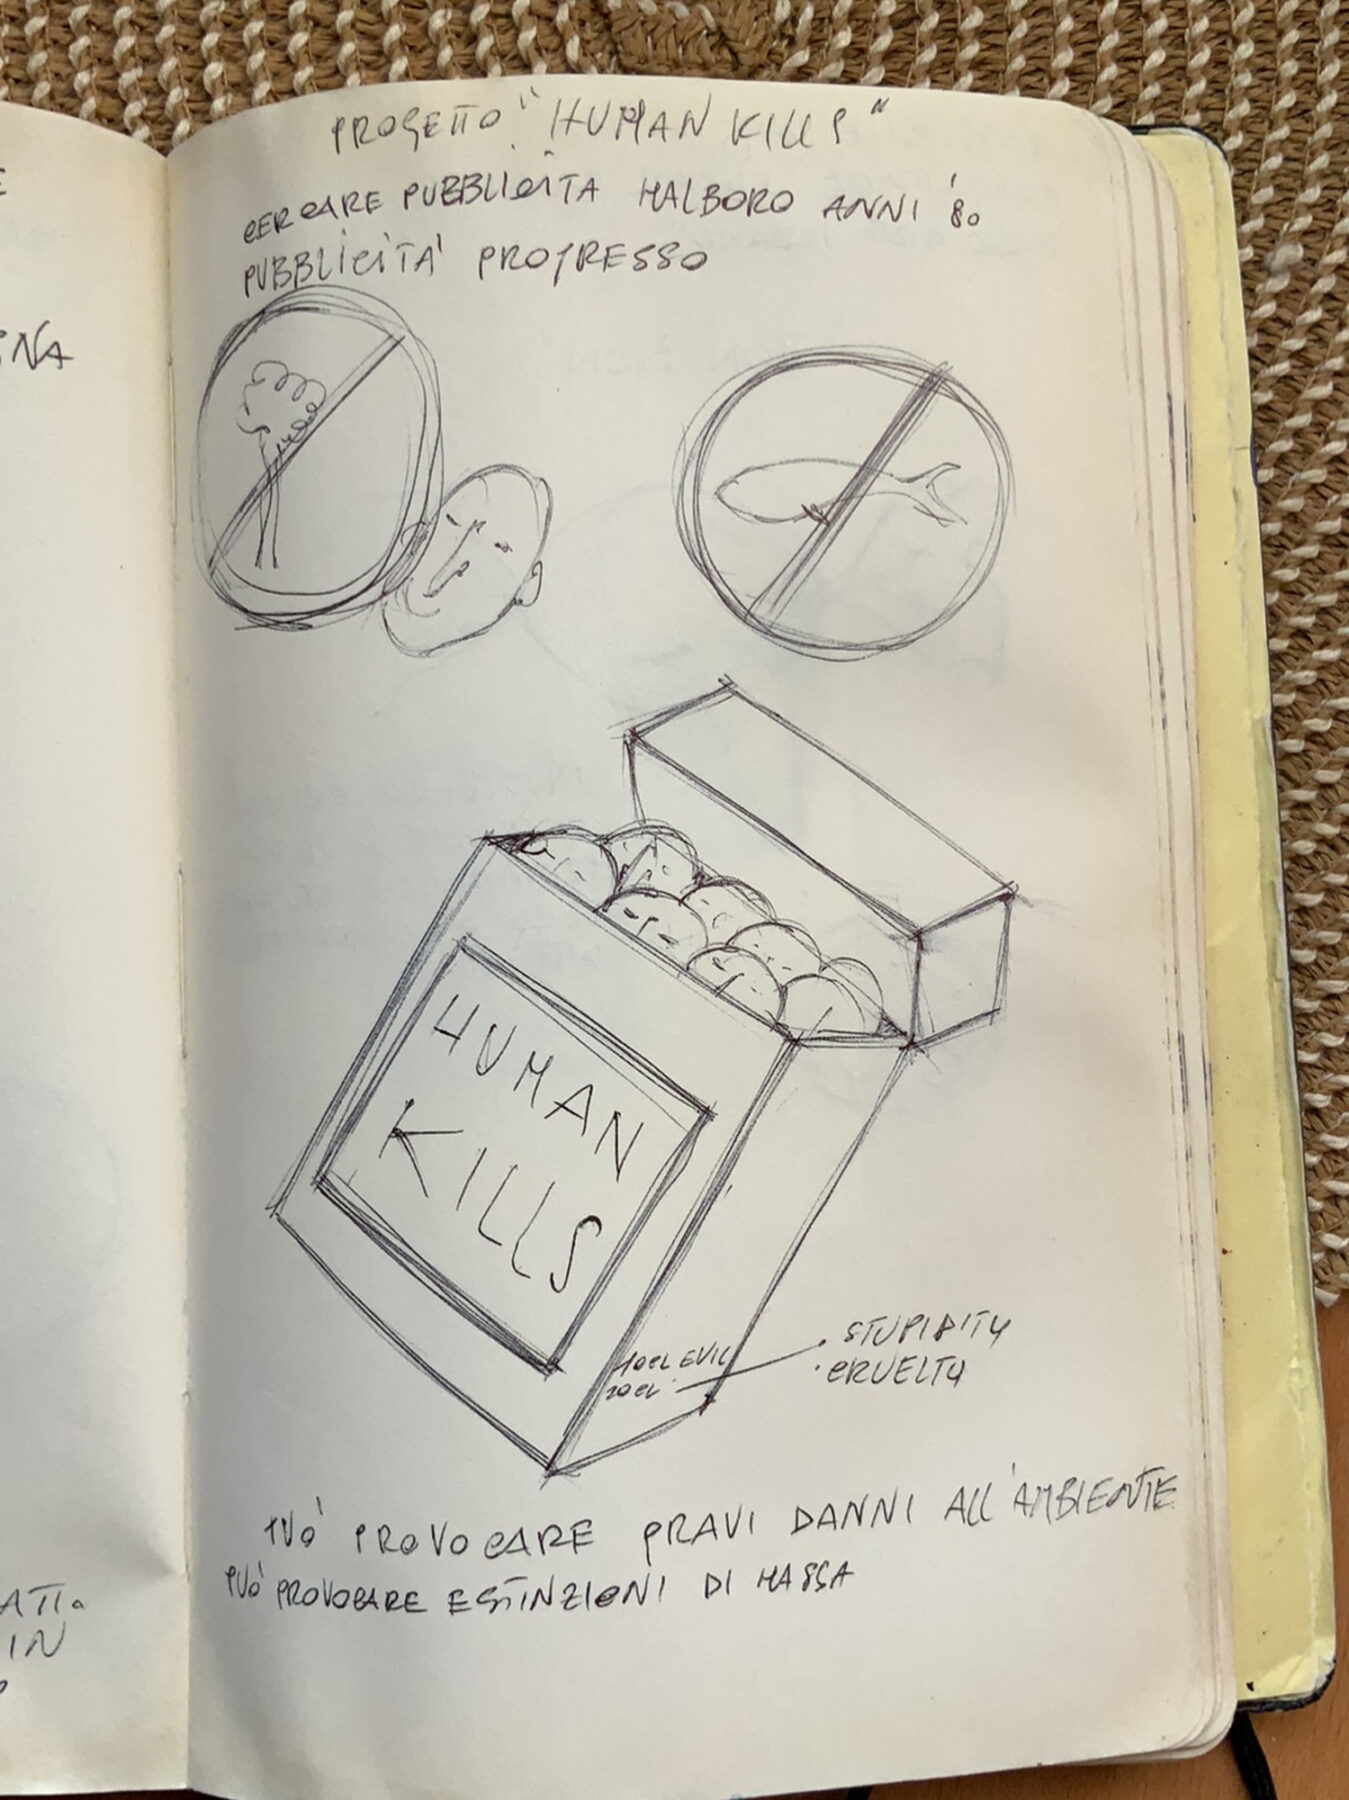 E
INA
ATTO
IN
PROGETTO "HUMAN KILLS"
CERCARE PUBBLICITA MALBORO ANNI '80
PUBBLICITA' PROGRESSO
HUMAN
KILLS
EVIL
• STUPIDITY
• CRUELTY
PUO' PROVOCARE GRAVI DANNI ALL'AMBIENTE
PUO' PROVOCARE ESTINZIONI DI MASSA